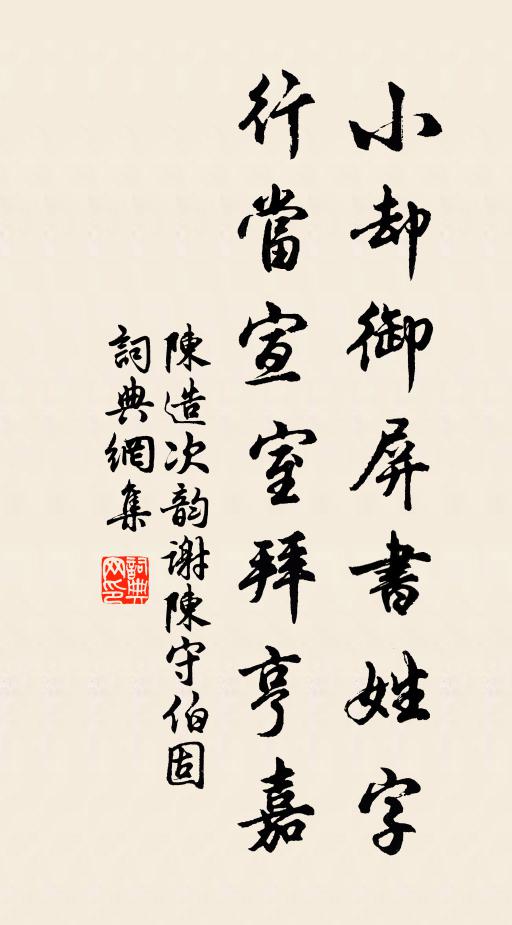 小却御屏書姓字
行當宣室拜亨嘉
陳造次韵謝陳守伯固
詞典網集
詞典网印